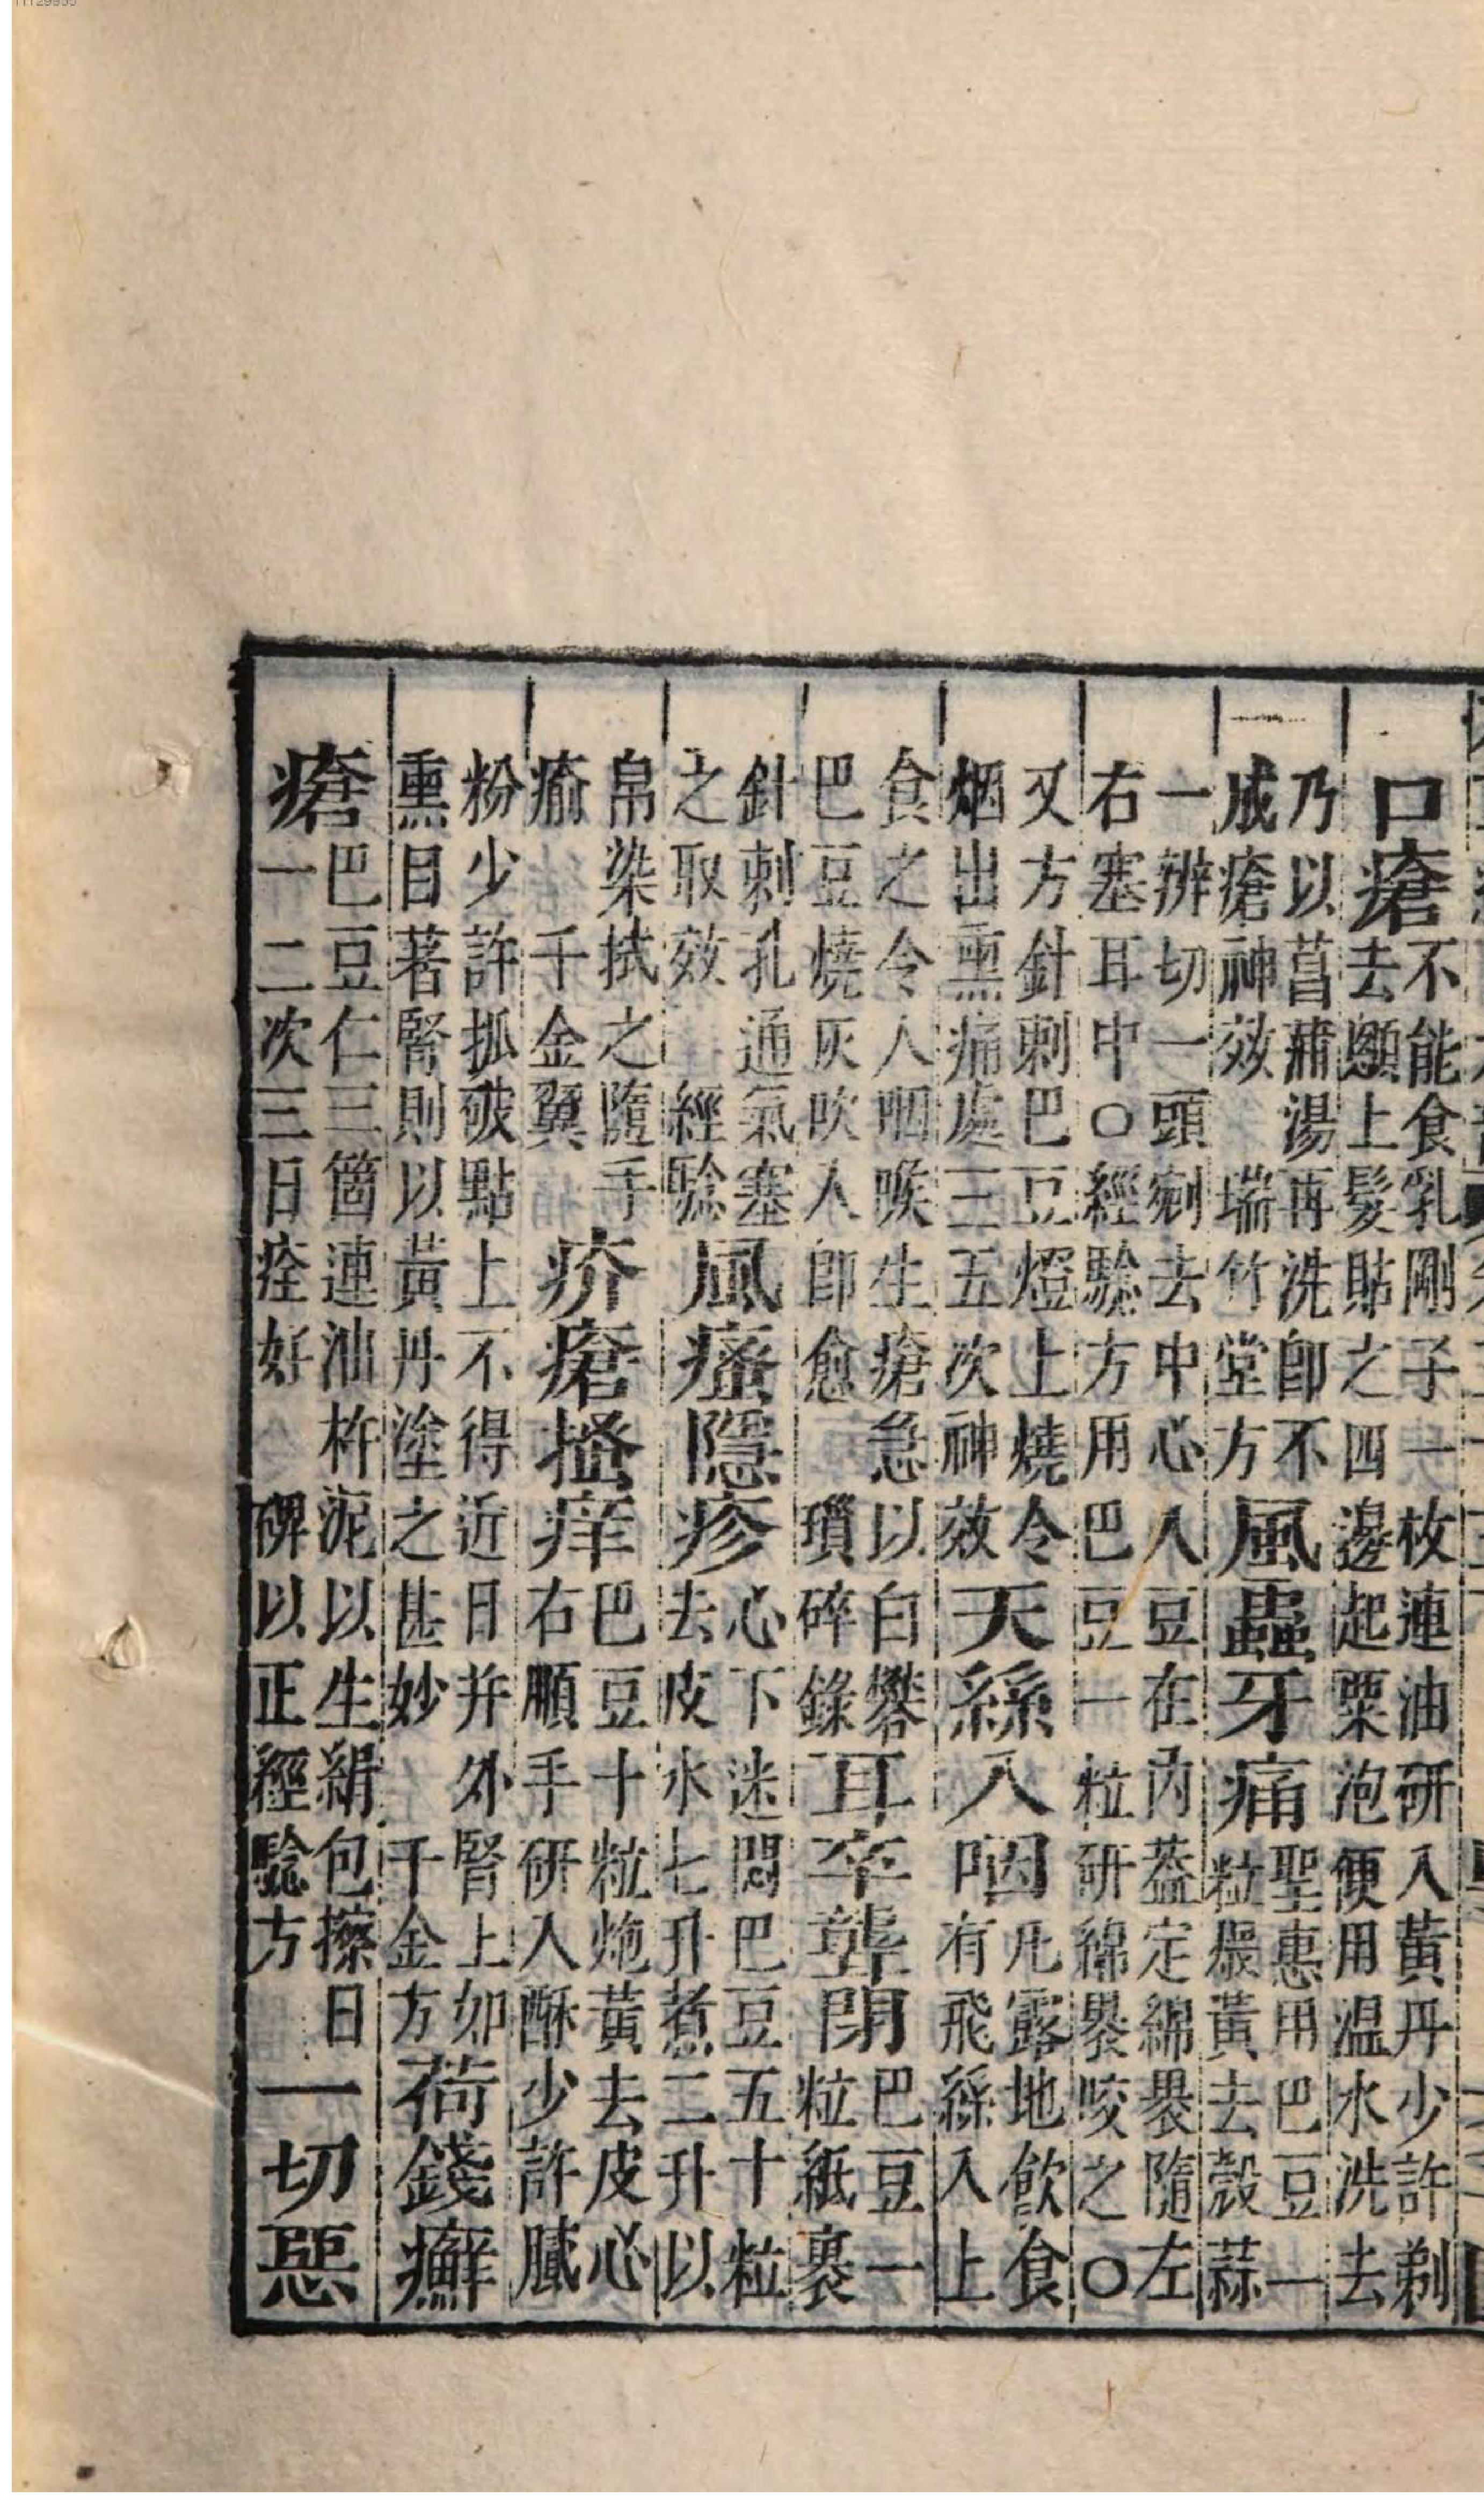 口瘡
不能食乳剛子一枚連油研入黃丹少許剃
去顖上髮貼之四邊起粟泡便用温水洗去
乃以菖蒲湯再洗卽不
成瘡神效 瑞竹堂方
風蟲牙痛
聖惠用巴豆一
粒煨黃去殼蒜
一辨切一頭剜去中心入豆在內蓋定綿褁隨左
右塞耳中○經驗方用巴豆一粒研綿褁咬之○
又方針刺巴豆燈上燒令
烟出熏痛處三五次神效
天絲入咽
凡露地飲食
有飛絲入上
食之令人咽喉生瘡急以白礬
巴豆燒灰吹入卽愈 瑣碎錄
耳卒聾閉
巴豆一
粒紙裹
針刺孔通氣塞
之取效 經驗
風瘙隱疹
心下迷悶巴豆五十粒
去皮水七升煮二升以
帛染拭之隨手
瘉 千金翼
疥瘡搔痒
巴豆十粒炮黃去皮心
右順手研入酥少許膩
粉少許抓破點上不得近日并外腎上如
熏目著腎則以黃丹塗之甚妙 千金方
荷錢癬
瘡
巴豆仁三箇連油杵泥以生絹包擦日
一二次三日痊好 碑以正經驗方
一切惡